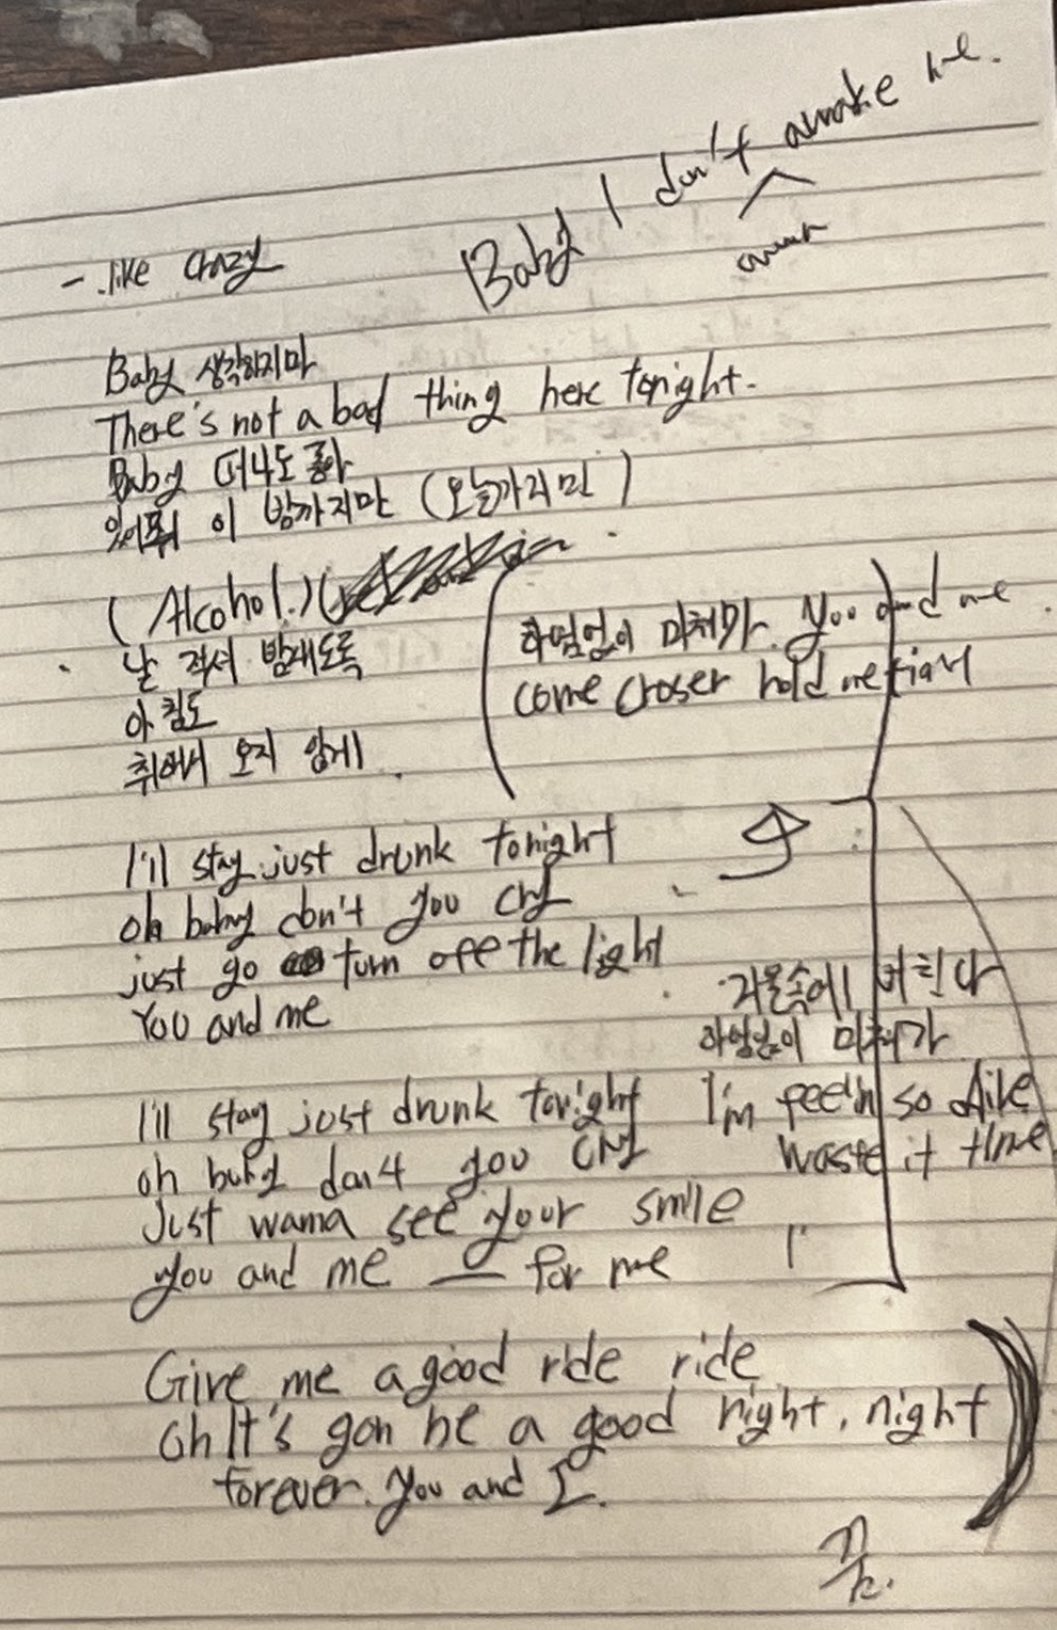 Baby I don't awake me.
- like crazy
Baby 생각하지마
There's not a bad thing here tonight.
Baby 떠나도 좋아
있어줘 이 밤까지만 (오늘까지만)
(Alcohol.)
날 적셔 밤새도록
아침도
취해서 오지 않게
하염없이 미쳐가 you and me
come croser hold me
I'll stay just drunk tonight
oh baby don't you cry
just go turn off the light
You and me
거울속에 비친 나
하염없이 미쳐가
I'm feel'in so alive
waste it time
I'll stay just drunk tonight
oh baby don't you cry
Just wanna see your smile
you and me — for me
Give me a good ride ride
Oh It's gon be a good night, night
forever. you and I.
끝.